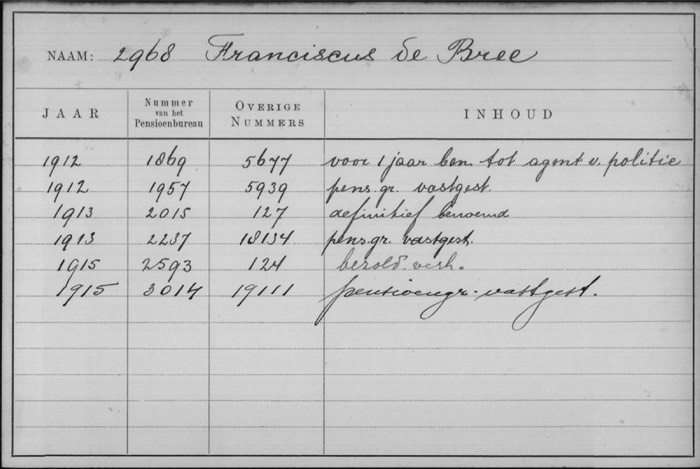 NAAM: 2968 Franciscus de Bree
JAAR Nummer van het Pensioenbureau OVERIGE NUMMERS INHOUD
1912 1869 5677 voor 1 jaar ben. tot agent v. politie
1912 1957 5939 pens.gr. vastgest.
1913 2015 127 definitief benoemd
1913 2237 18134 pens.gr. vastgest.
1915 2593 124 bezold. verh.
1915 3014 19111 pensioengr. vastgest.